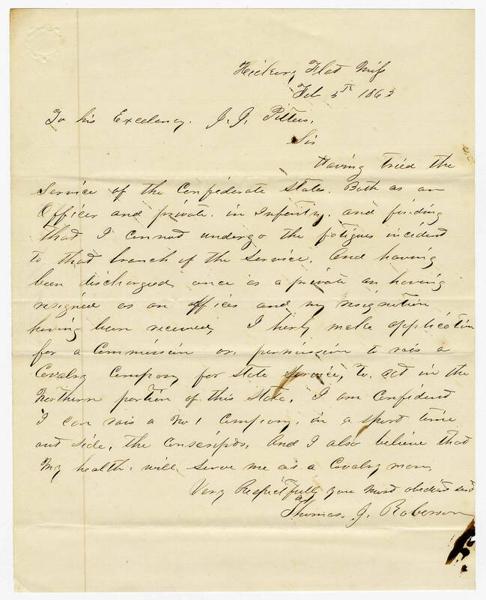 Hickory Flat Miss
Feb 5th 1863
To his Excelency. J. J. Pettus,
Sir
Having tried the
Service of the Confederate States. Both as an
Officer and private. in Infantry. and finding
that I cannot undergo the fatigues incident
to that branch of the Service. And having
been discharged once as a private an having
resigned as an officer and my resignation
having been received I hirby make application
for a Commission or permission to rais a
Cavalry Company for State Service, to act in the
Northern portion of this State, I am Confident
I can rais a No 1 Company. in a short time
out side, the conscripts, And I also believe that
My health. will serve me as a Cavalry man,
Very Respectfully your Most obedient
Thomas. J. Roberson